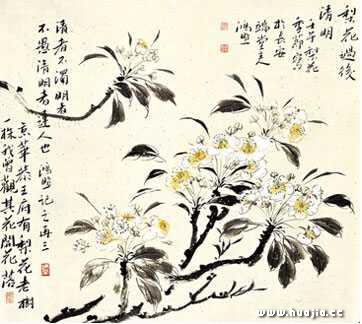 梨花過後
清明
壬午梨花
季節寫
於長安
鴻照
清者不濁明者
不愚清明者達人也 鴻照記之再三
京華恭王府有梨花老樹
一株我曾觀其花開花落
www.huajia.cc